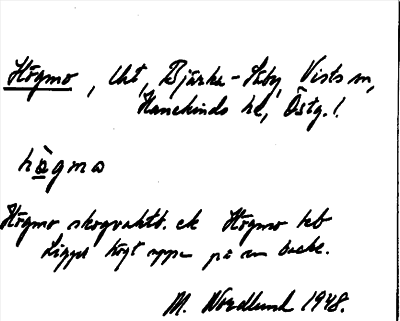 Högmo, lht, Bjärka-Säby, Vists sn,
Hanekinds hd, Östg. l.
hògmo
Högmo skogvaktb. ek Högmo
Ligger högt uppe på en backe.
M. Nordlund 1948.